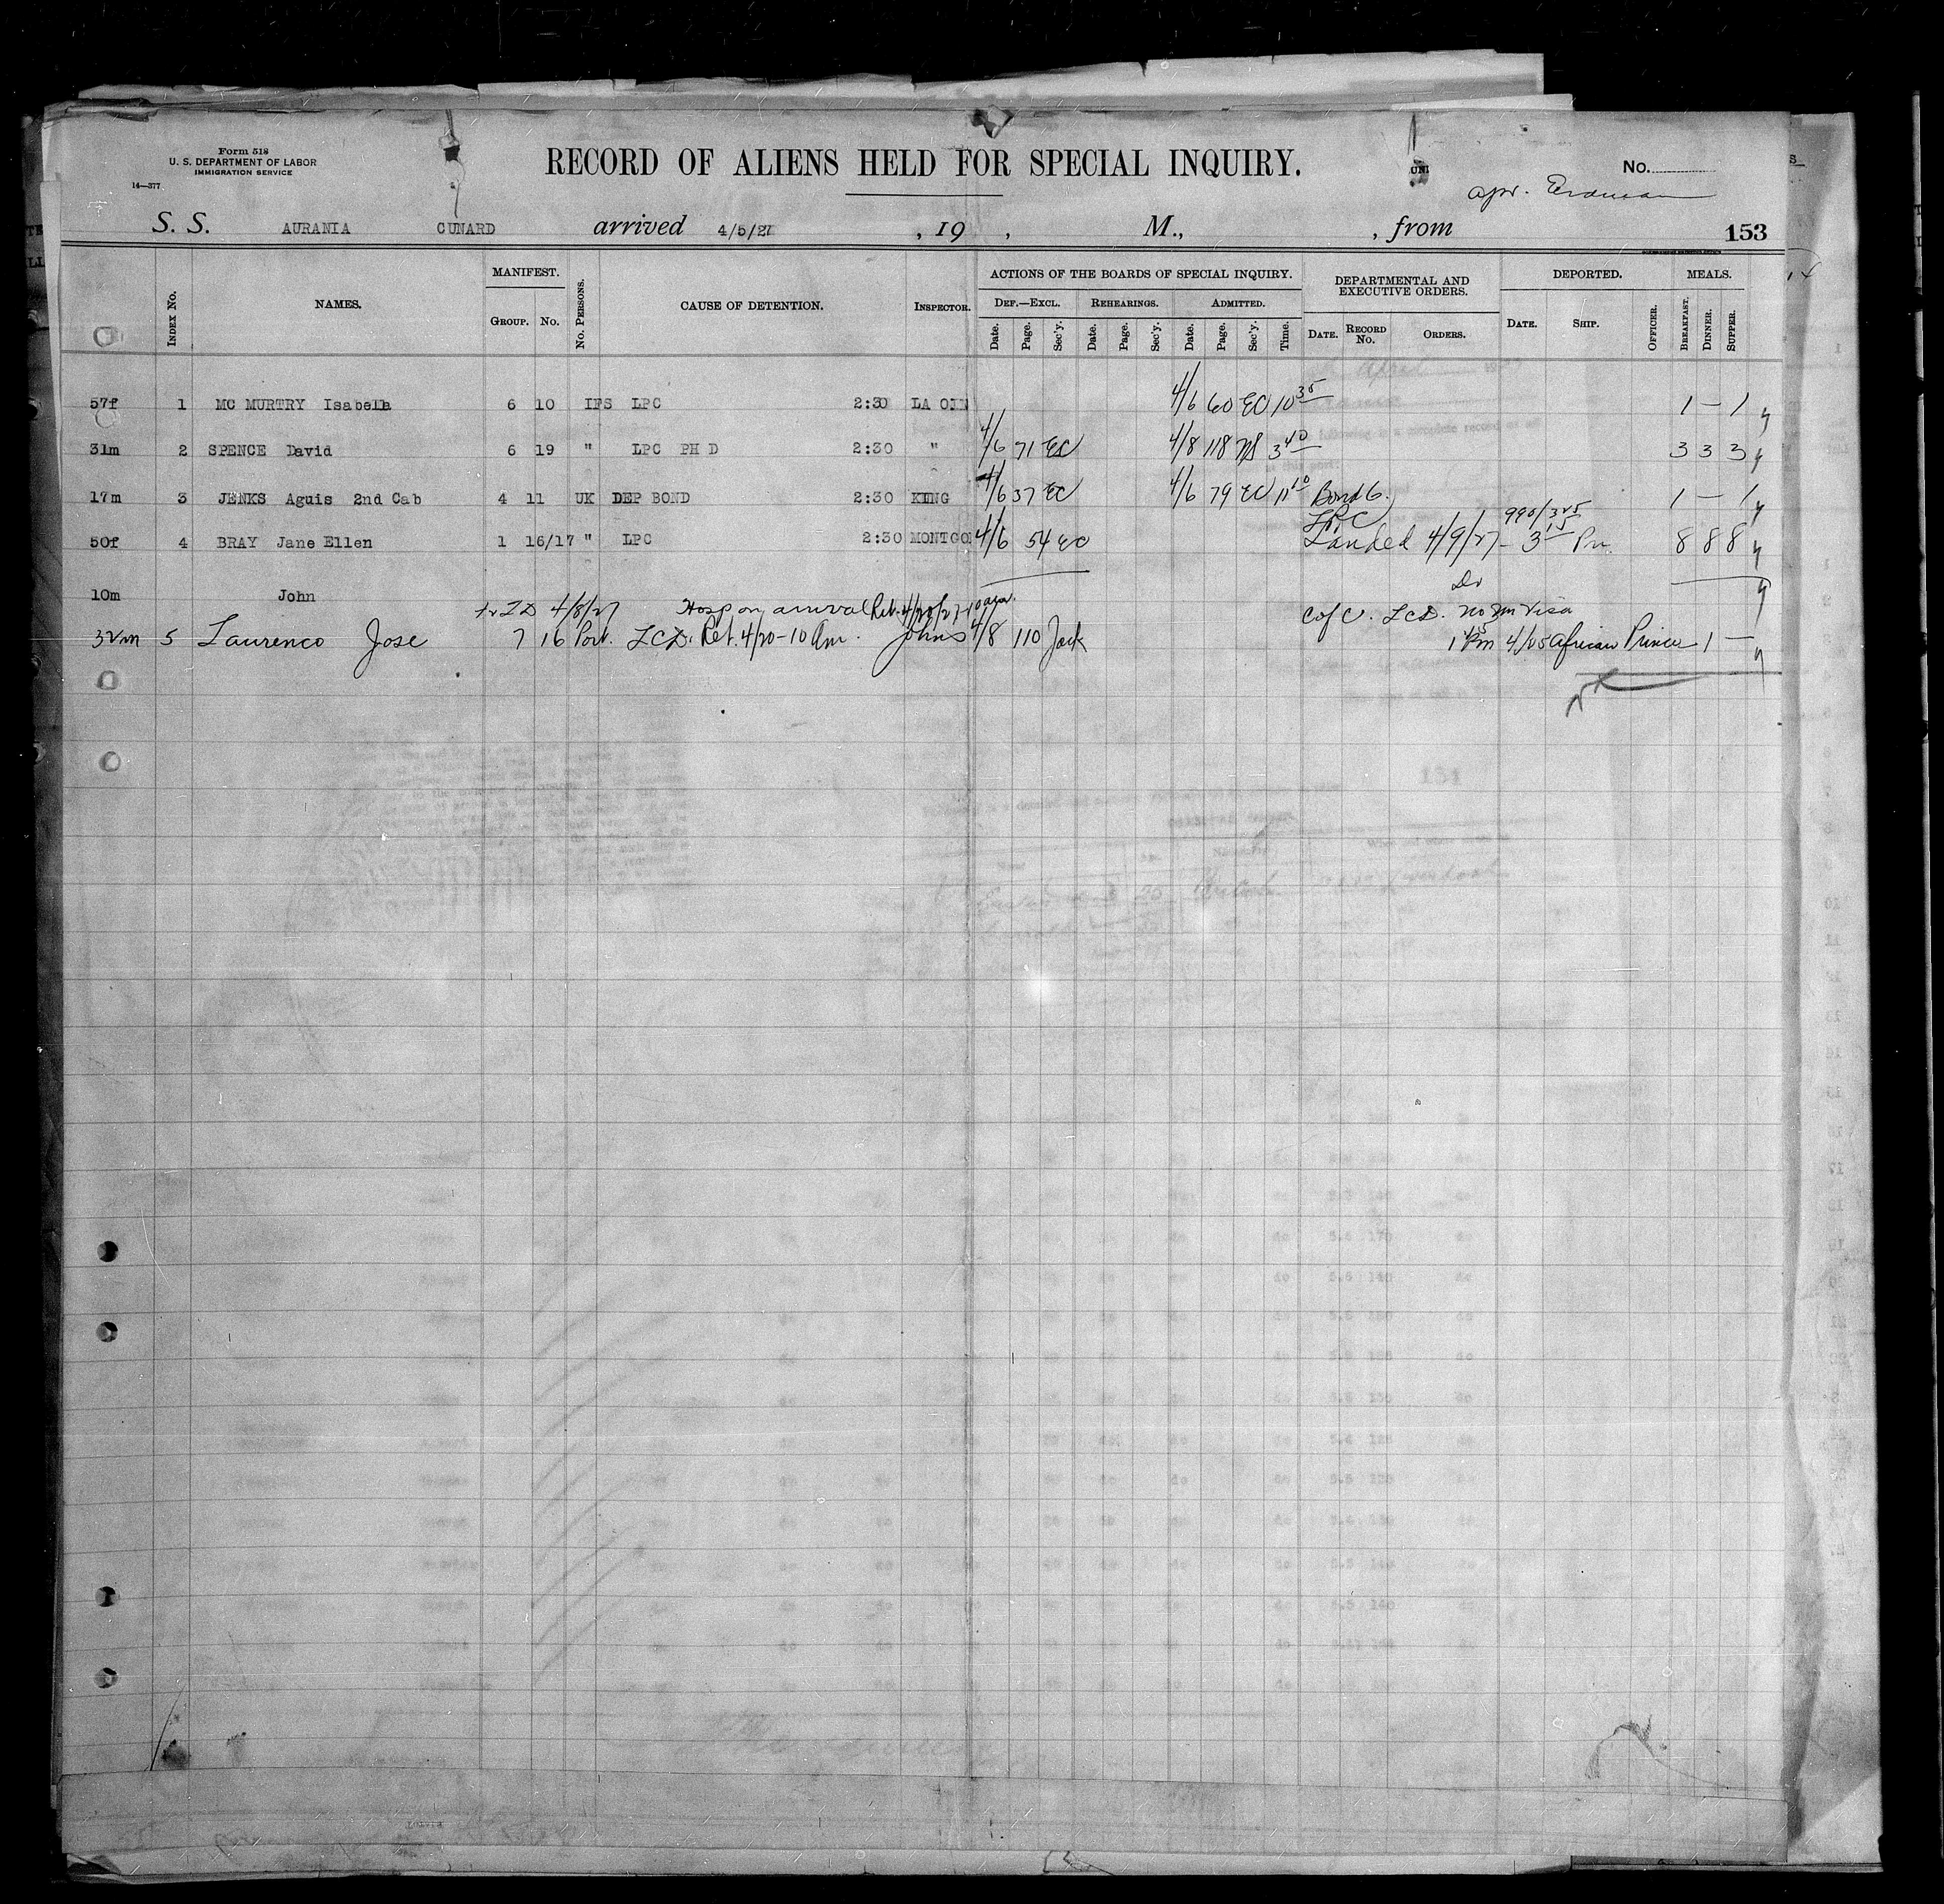 Form 518
U. S. DEPARTMENT OF LABOR
IMMIGRATION SERVICE
14—377
RECORD OF ALIENS HELD FOR SPECIAL INQUIRY.
No.
S. S. AURANIA CUNARD arrived 4/5/27 , 19 , M., , from 153
INDEX No. NAMES. MANIFEST. GROUP. No. No. PERSONS. CAUSE OF DETENTION. INSPECTOR.
ACTIONS OF THE BOARDS OF SPECIAL INQUIRY.
DEF.—EXCL. REHEARINGS. ADMITTED.
Date. Page. Sec'y. Date. Page. Sec'y. Date. Page. Sec'y. Time.
DEPARTMENTAL AND EXECUTIVE ORDERS.
DATE. RECORD No. ORDERS.
DEPORTED.
DATE. SHIP. OFFICER.
MEALS.
BREAKFAST. DINNER. SUPPER.
57f 1 MC MURTRY Isabella 6 10 IFS LPC 2:30 4/6 60 EC 10 35 1 — 1
31m 2 SPENCE David 6 19 " LPC PH D 2:30 " 4/6 71 EC 4/8 118 3 40 3 3 3
17m 3 JENKS Aguis 2nd Cab 4 11 UK DEP BOND 2:30 KING 4/6 37 EC 4/6 79 EC 11 10 Bond 1 — 1
LPC
50f 4 BRAY Jane Ellen 1 16/17 " LPC 2:30 MONTGO 4/6 54 EC Landed 4/9/27 - 3 15 Pm. 8 8 8
10m John
4/8/27 Hosp on arrival Rel. 4/20/27 10 am. C of C. LCD. no Im Visa
32m 5 Laurenco Jose 7 16 Por. LCD. Rel. 4/20 - 10 Am. Johns 4/8 110 Jack 1 Pm 4/25 African Prince 1 —